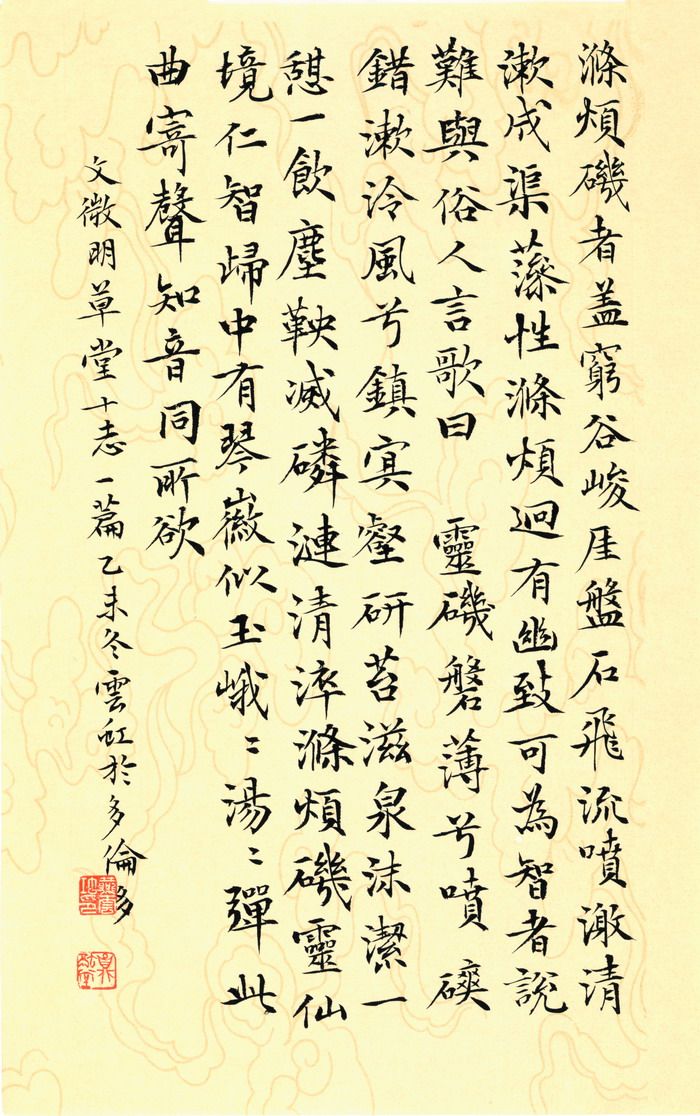 滌煩磯者盖窮谷峻厓盤石飛流噴激清
漱成渠藻性滌煩迥有幽致可為智者說
難與俗人言歌曰 靈磯磐薄兮噴磢
錯漱泠風兮鎮冥壑研苔滋泉沫潔一
憩一飲塵鞅滅磷漣清淬滌煩磯靈仙
境仁智歸中有琴徽似玉峨〻湯〻彈此
曲寄聲知音同所欲
文徵明草堂十志一篇乙未冬雲虹於多倫多